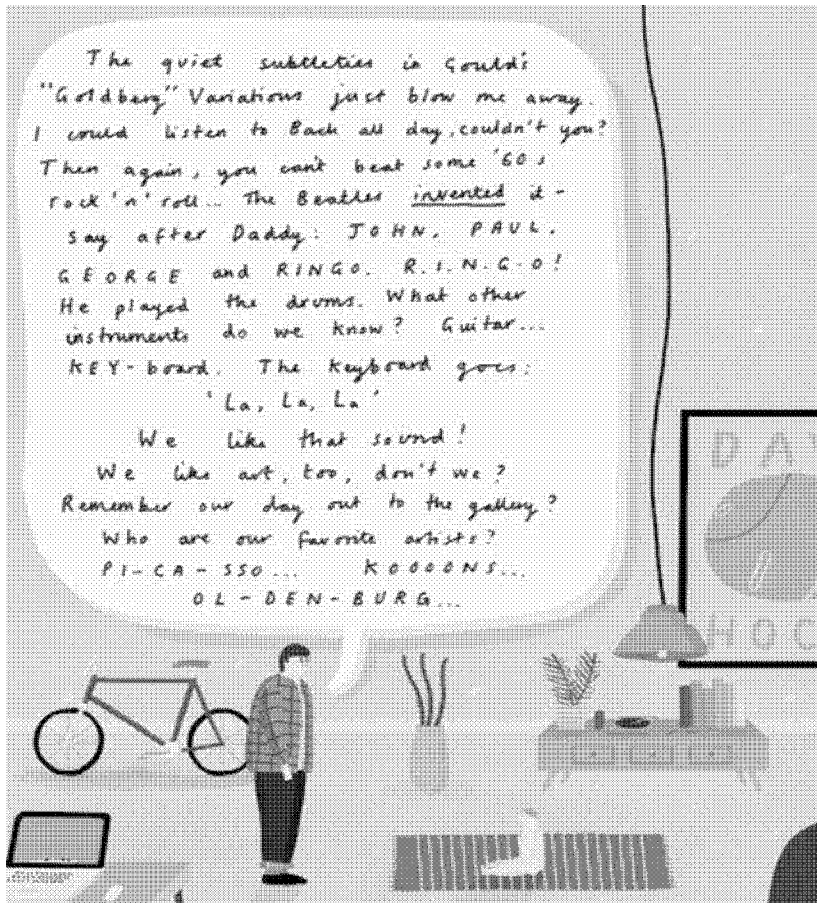 The quiet subtleties in Gould's
"Goldberg" Variations just blow me away.
I could listen to Bach all day, couldn't you?
Then again, you can't beat some '60s
rock 'n' roll... The Beatles invented it -
say after Daddy: JOHN, PAUL,
GEORGE and RINGO. R.I.N.G.O!
He played the drums. What other
instruments do we know? Guitar...
KEY-board. The keyboard goes:
'La, La, La'
We like that sound!
We like art, too, don't we?
Remember our day out to the gallery?
Who are our favorite artists?
PI-CA-SSO... KOOOONS...
OL-DEN-BURG...
DAV
HOC